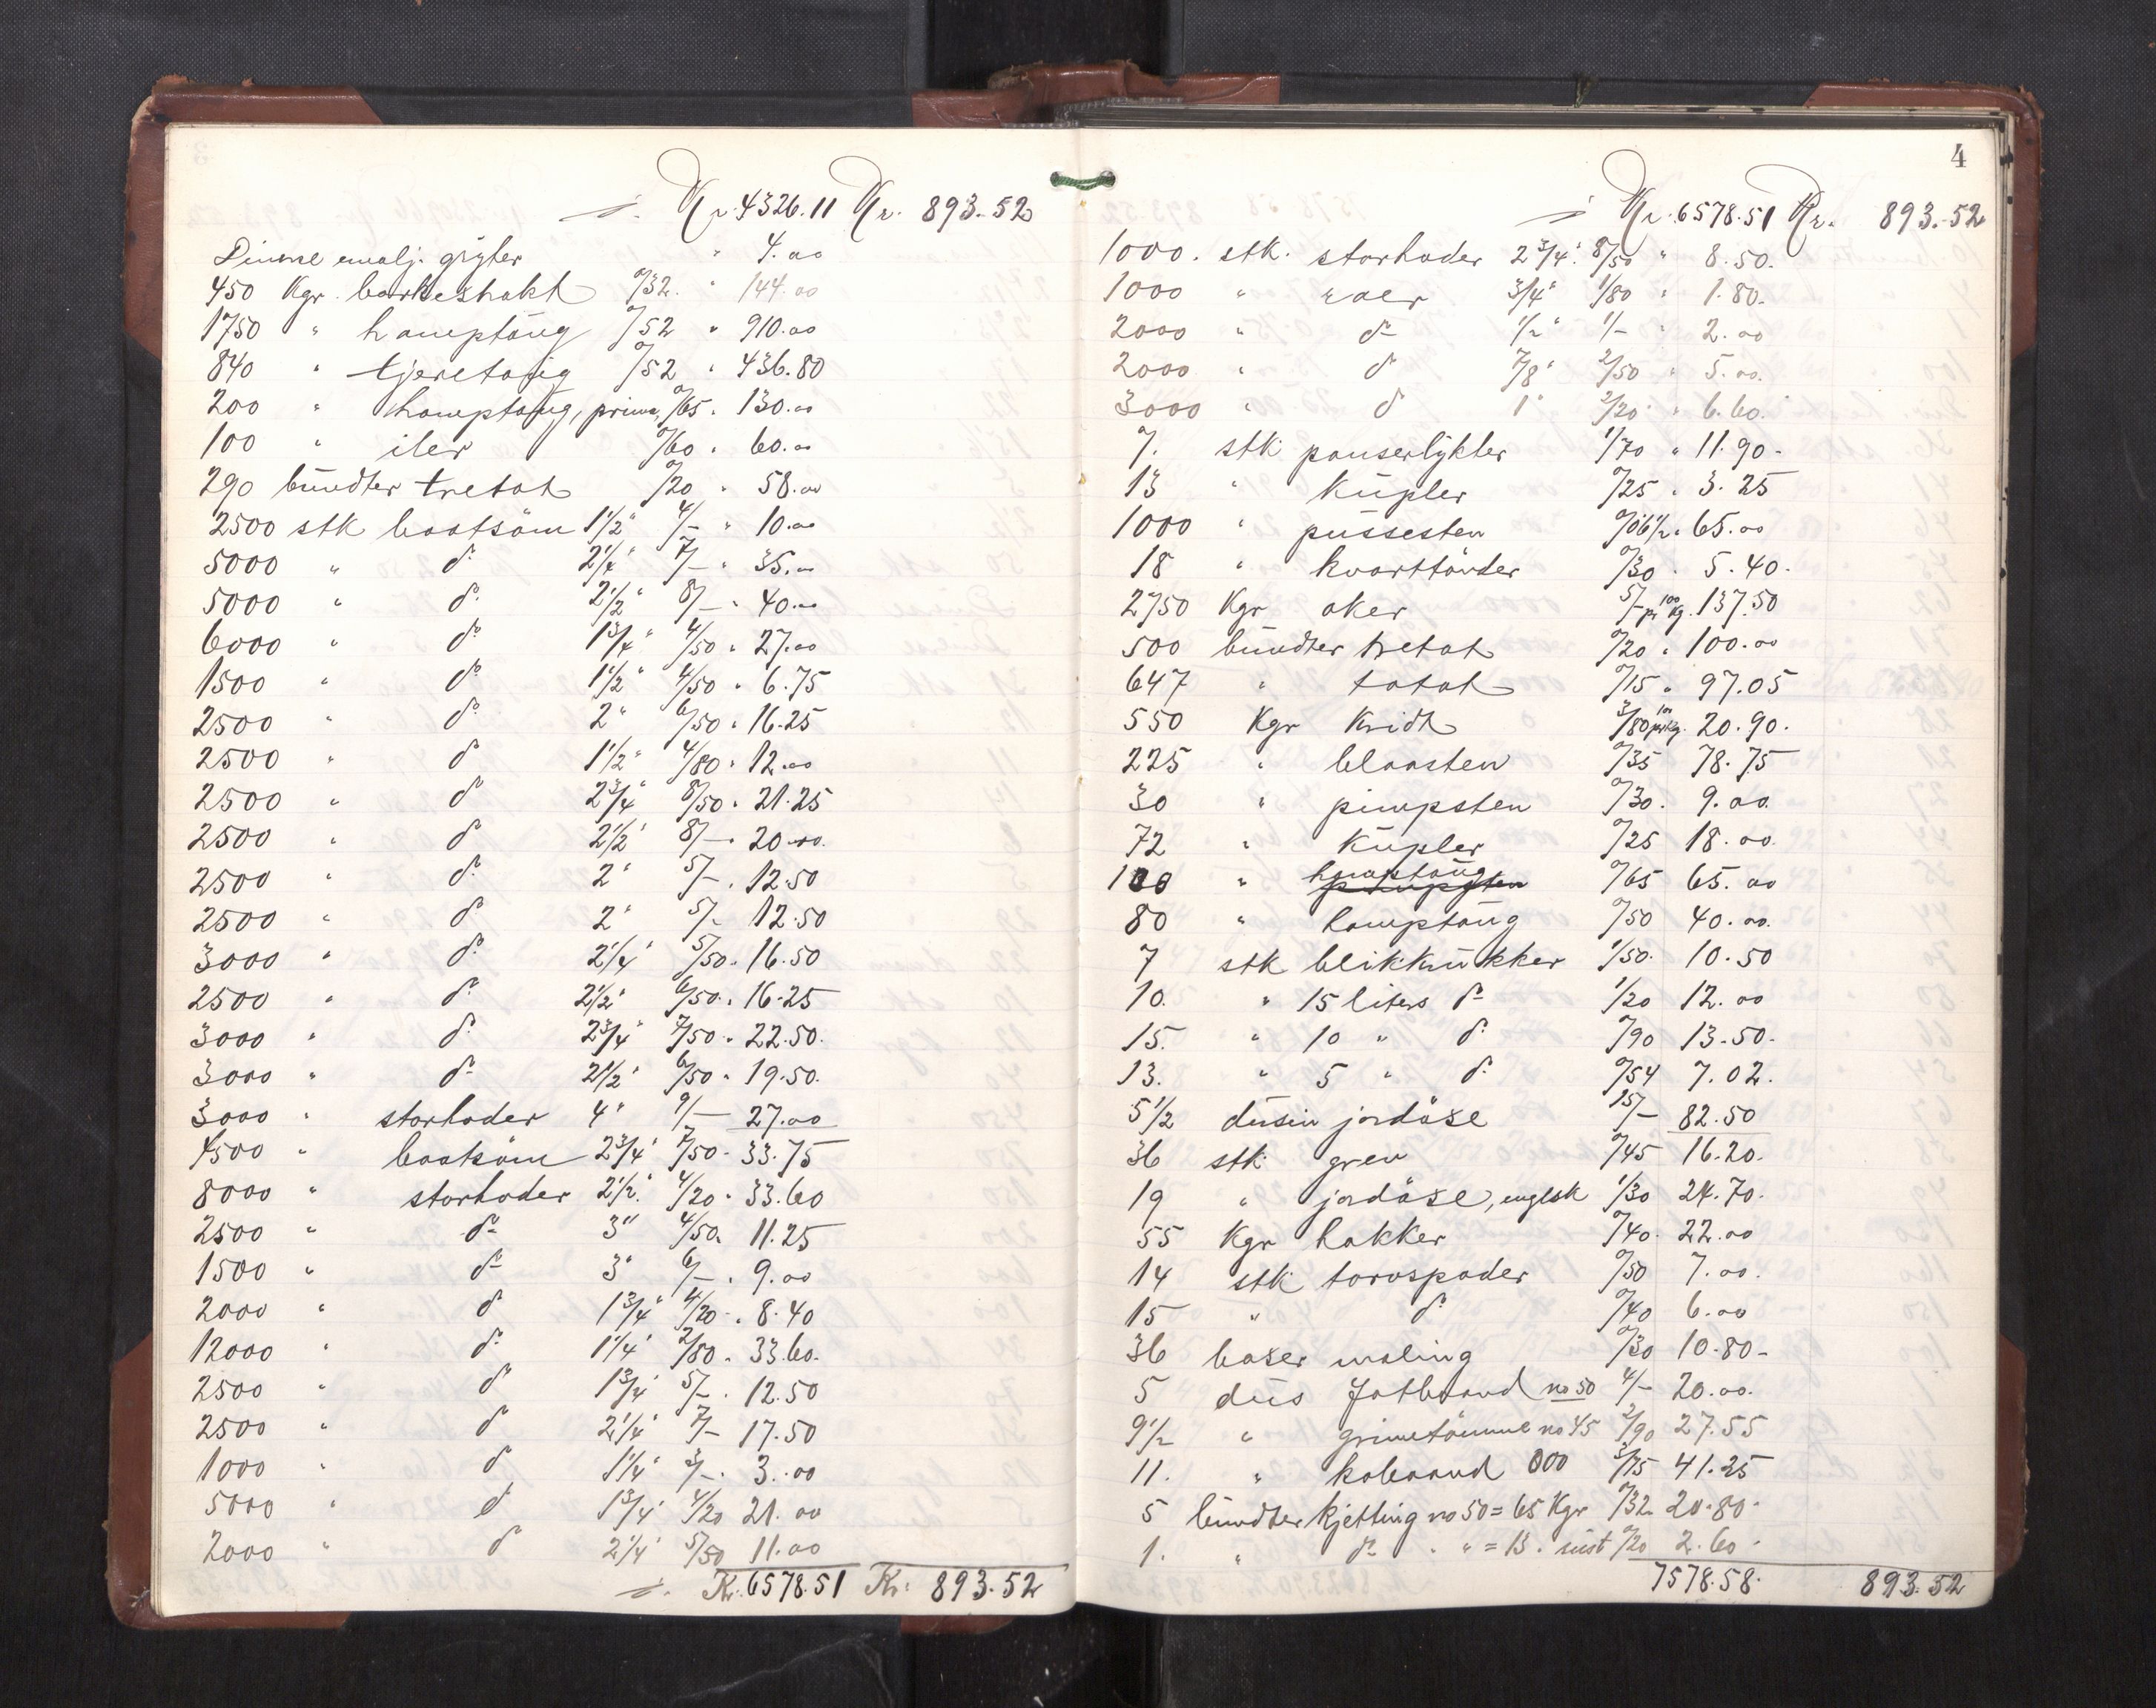 Kr. 4326.11 Kr. 893.52
Dinne emalj. gryter " 4.00
450 Kgr. barkeshakt 0/32 " 144.00
1750 " hamptaug 0/52 " 910.00
840 " tjeretaug 0/52 " 436.80
200 " hamptaug, prima, 0/65 " 130.00
100 " iler 0/60 " 60.00
290 bundter tretat 0/20 " 58.00
2500 stk baatsöm 1 1/2" 4/- " 10.00
5000 " do 2 1/4" 7/- " 35.00
5000 " do 2 1/2" 8/- " 40.00
6000 " do 1 3/4" 4/50 " 27.00
1500 " do 1 1/2" 4/50 " 6.75
2500 " do 2" 6/50 " 16.25
2500 " do 1 1/2" 4/80 " 12.00
2500 " do 2 3/4" 8/50 " 21.25
2500 " do 2 1/2" 8/- " 20.00
2500 " do 2" 5/- " 12.50
2500 " do 2" 5/- 12.50
3000 " do 2 1/4" 5/50 " 16.50
2500 " do 2 1/2" 6/50 " 16.25
3000 " do 2 3/4" 7/50 " 22.50
3000 " do 2 1/2" 6/50 " 19.50
3000 " storhoder 4" 9/- 27.00
4500 " baatsöm 2 3/4" 7/50 " 33.75
8000 " storhoder 2 1/2" 4/20 " 33.60
2500 " do 3" 4/50 " 11.25
1500 " do 3" 6/- " 9.00
2000 " do 1 3/4" 4/20 " 8.40
12000 " do 1 1/4" 2/80 " 33.60
2500 " do 1 3/4" 5/- " 12.50
2500 " do 2 1/4" 7/- 17.50
1000 " do 1 1/4" 3/- " 3.00
5000 " do 1 3/4" 4/20 21.00
2000 " do 2 1/4" 5/50 11.00
Kr. 6578.51 Kr. 893.52
4
Kr. 6578.51 Kr. 893.52
1000. stk. storhoder 2 3/4" 8/50 " 8.50
1000 " roer 3/4" 1/80 " 1.80
2000 " do 1/2" 1/- " 2.00
2000 " do 7/8" 2/50 " 5.00
3000 " do 1" 2/20 " 6.60
7. stk panserlykter 1/70 " 11.90
13 " kupler 0/25 " 3.25
1000 " pussesten 0/06 1/2 " 65.00
18 " kvarttönder 0/30 " 5.40
2750 Kgr oker 5/- pr 100 kg. 137.50
500 bundter tretat 0/20 " 100.00
647 " totat 0/15 " 97.05
550 Kgr Kridt 3/80 pr 100 kg. 20.90
225 " blaasten 0/35 78.75
30 " pimpsten 0/30 9.00
72 " kupler 0/25 18.00
100 " hamptaug 0/65 65.00
80 " hamptaug 0/50 40.00
7 stk blikkrukker 1/50 10.50
10. " 15 liters do 1/20 12.00
15. " 10 " do 0/90 13.50
13. " 5 " do 0/54 7.02
5 1/2 dusin jordöxe 15/- 82.50
36 stk grev 0/45 16.20
19 " jordöxe, englsk 1/30 24.70
55 Kgr hakker 0/40 22.00
14 stk torvspader 0/50 7.00
15 " do 0/40 6.00
36 boxer maling 0/30 10.80
5 dus Fotbaand no 50 4/- 20.00
9 1/2 " grimetömme no 45 2/90 27.55
11. " kobaand 000 3/75 41.25
5 bundter kjetting no 50 = 65 Kgr 0/32 20.80
1. " do " " = 13 " rust 0/20 2.60
7578.58 893.52